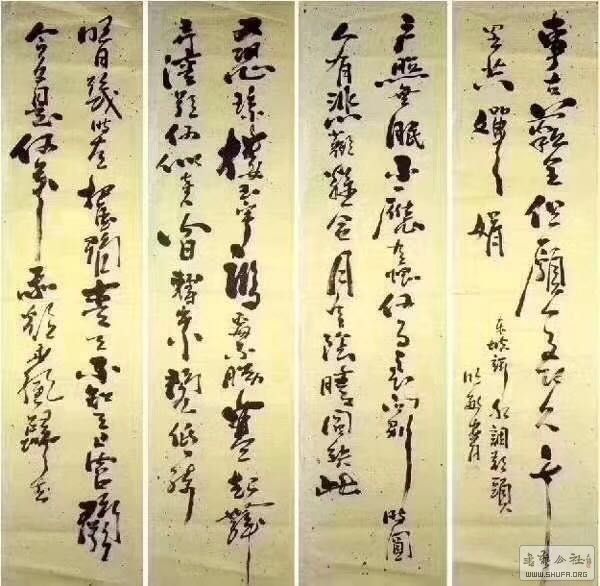 明月幾時有把酒問青天不知天上宮闕
今夕是何年我欲乘風歸去
又恐瓊樓玉宇高處不勝寒起舞
弄清影何似在人間轉朱閣低綺
戶照無眠不應有恨何事長向別時圓
人有悲歡離合月有陰晴圓缺此
事古難全但願人長久千
里共嬋娟
東坡詞水調歌頭
书法公社
WWW.SHUFA.ORG